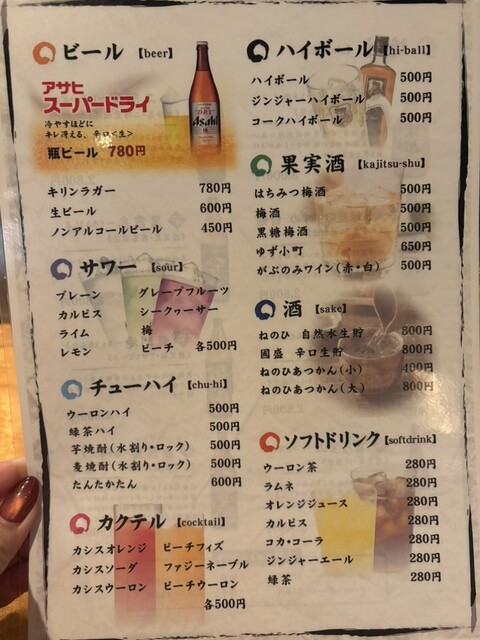 ビール 【beer】
アサヒ
スーパードライ
冷やすほどに
キレ冴える、辛口<生>
瓶ビール 780円
Asahi
キリンラガー 780円
生ビール 600円
ノンアルコールビール 450円
サワー 【sour】
プレーン グレープフルーツ
カルピス シークァーサー
ライム 梅
レモン ピーチ 各500円
チューハイ 【chu-hi】
ウーロンハイ 500円
緑茶ハイ 500円
芋焼酎(水割り・ロック) 500円
麦焼酎(水割り・ロック) 500円
たんたかたん 600円
カクテル 【cocktail】
カシスオレンジ ピーチフィズ
カシスソーダ ファジーネーブル
カシスウーロン ピーチウーロン
各500円
ハイボール 【hi-ball】
ハイボール 500円
ジンジャーハイボール 500円
コークハイボール 500円
果実酒 【kajitsu-shu】
はちみつ梅酒 500円
梅酒 500円
黒糖梅酒 500円
ゆず小町 650円
がぶのみワイン(赤・白) 500円
酒 【sake】
ねのひ 自然水生貯 800円
國盛 辛口生貯 800円
ねのひあつかん(小) 400円
ねのひあつかん(大) 800円
ソフトドリンク 【softdrink】
ウーロン茶 280円
ラムネ 280円
オレンジジュース 280円
カルピス 280円
コカ・コーラ 280円
ジンジャーエール 280円
緑茶 280円